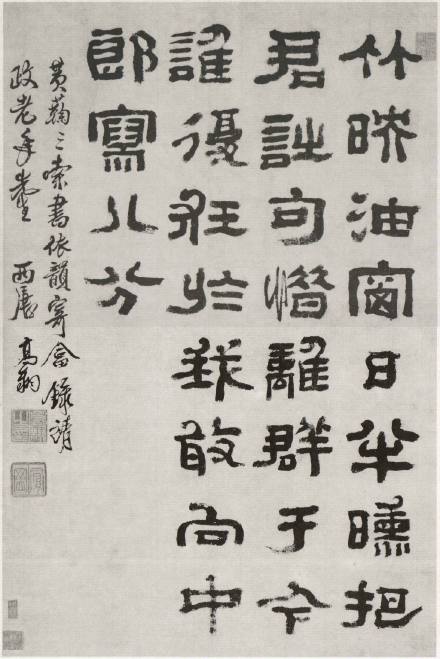 竹映油窗日半曛把
君詩句惜離群于今
誰復狂於我敢向中
郎寫八分
黃蘜三索書依韻寄畣錄請
政老年臺 西唐高翔